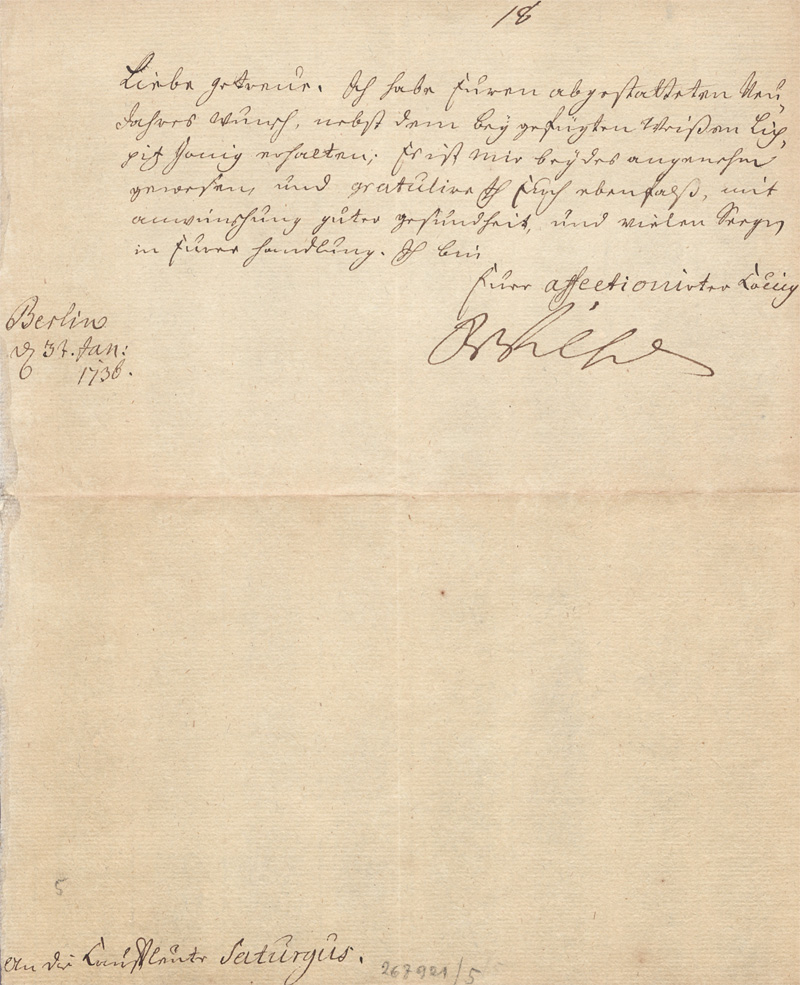 18
Liebe getreue. Ich habe Euren abgestatteten Neu
Jahres wunsch, nebst dem bey gefügten Weißen Lip,
pitz Honig erhalten; Es ist mir beydes angenehm
gewesen, und gratulire Ich Euch ebenfalß, mit
anwünschung guter gesundheit, und vielen Seegen
in Eurer handlung. Ich bin
Euer affectionirter König
Berlin
d 31. Jan:
1736.
5
An die Kauffleute Saturgus.
267921/5